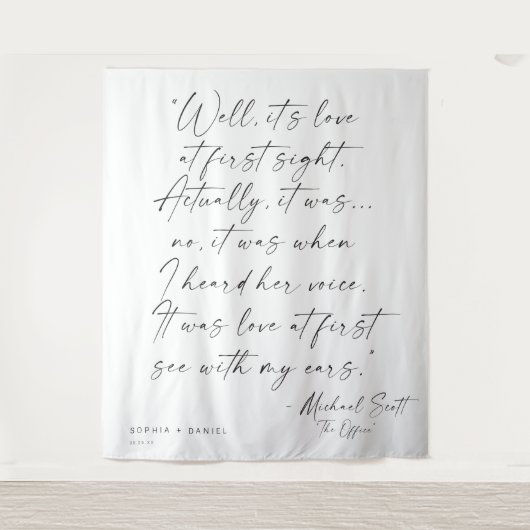 "Well, it's love
at first sight.
Actually, it was...
no, it was when
I heard her voice.
It was love at first
see with my ears."
- Michael Scott
"The Office"
SOPHIA + DANIEL